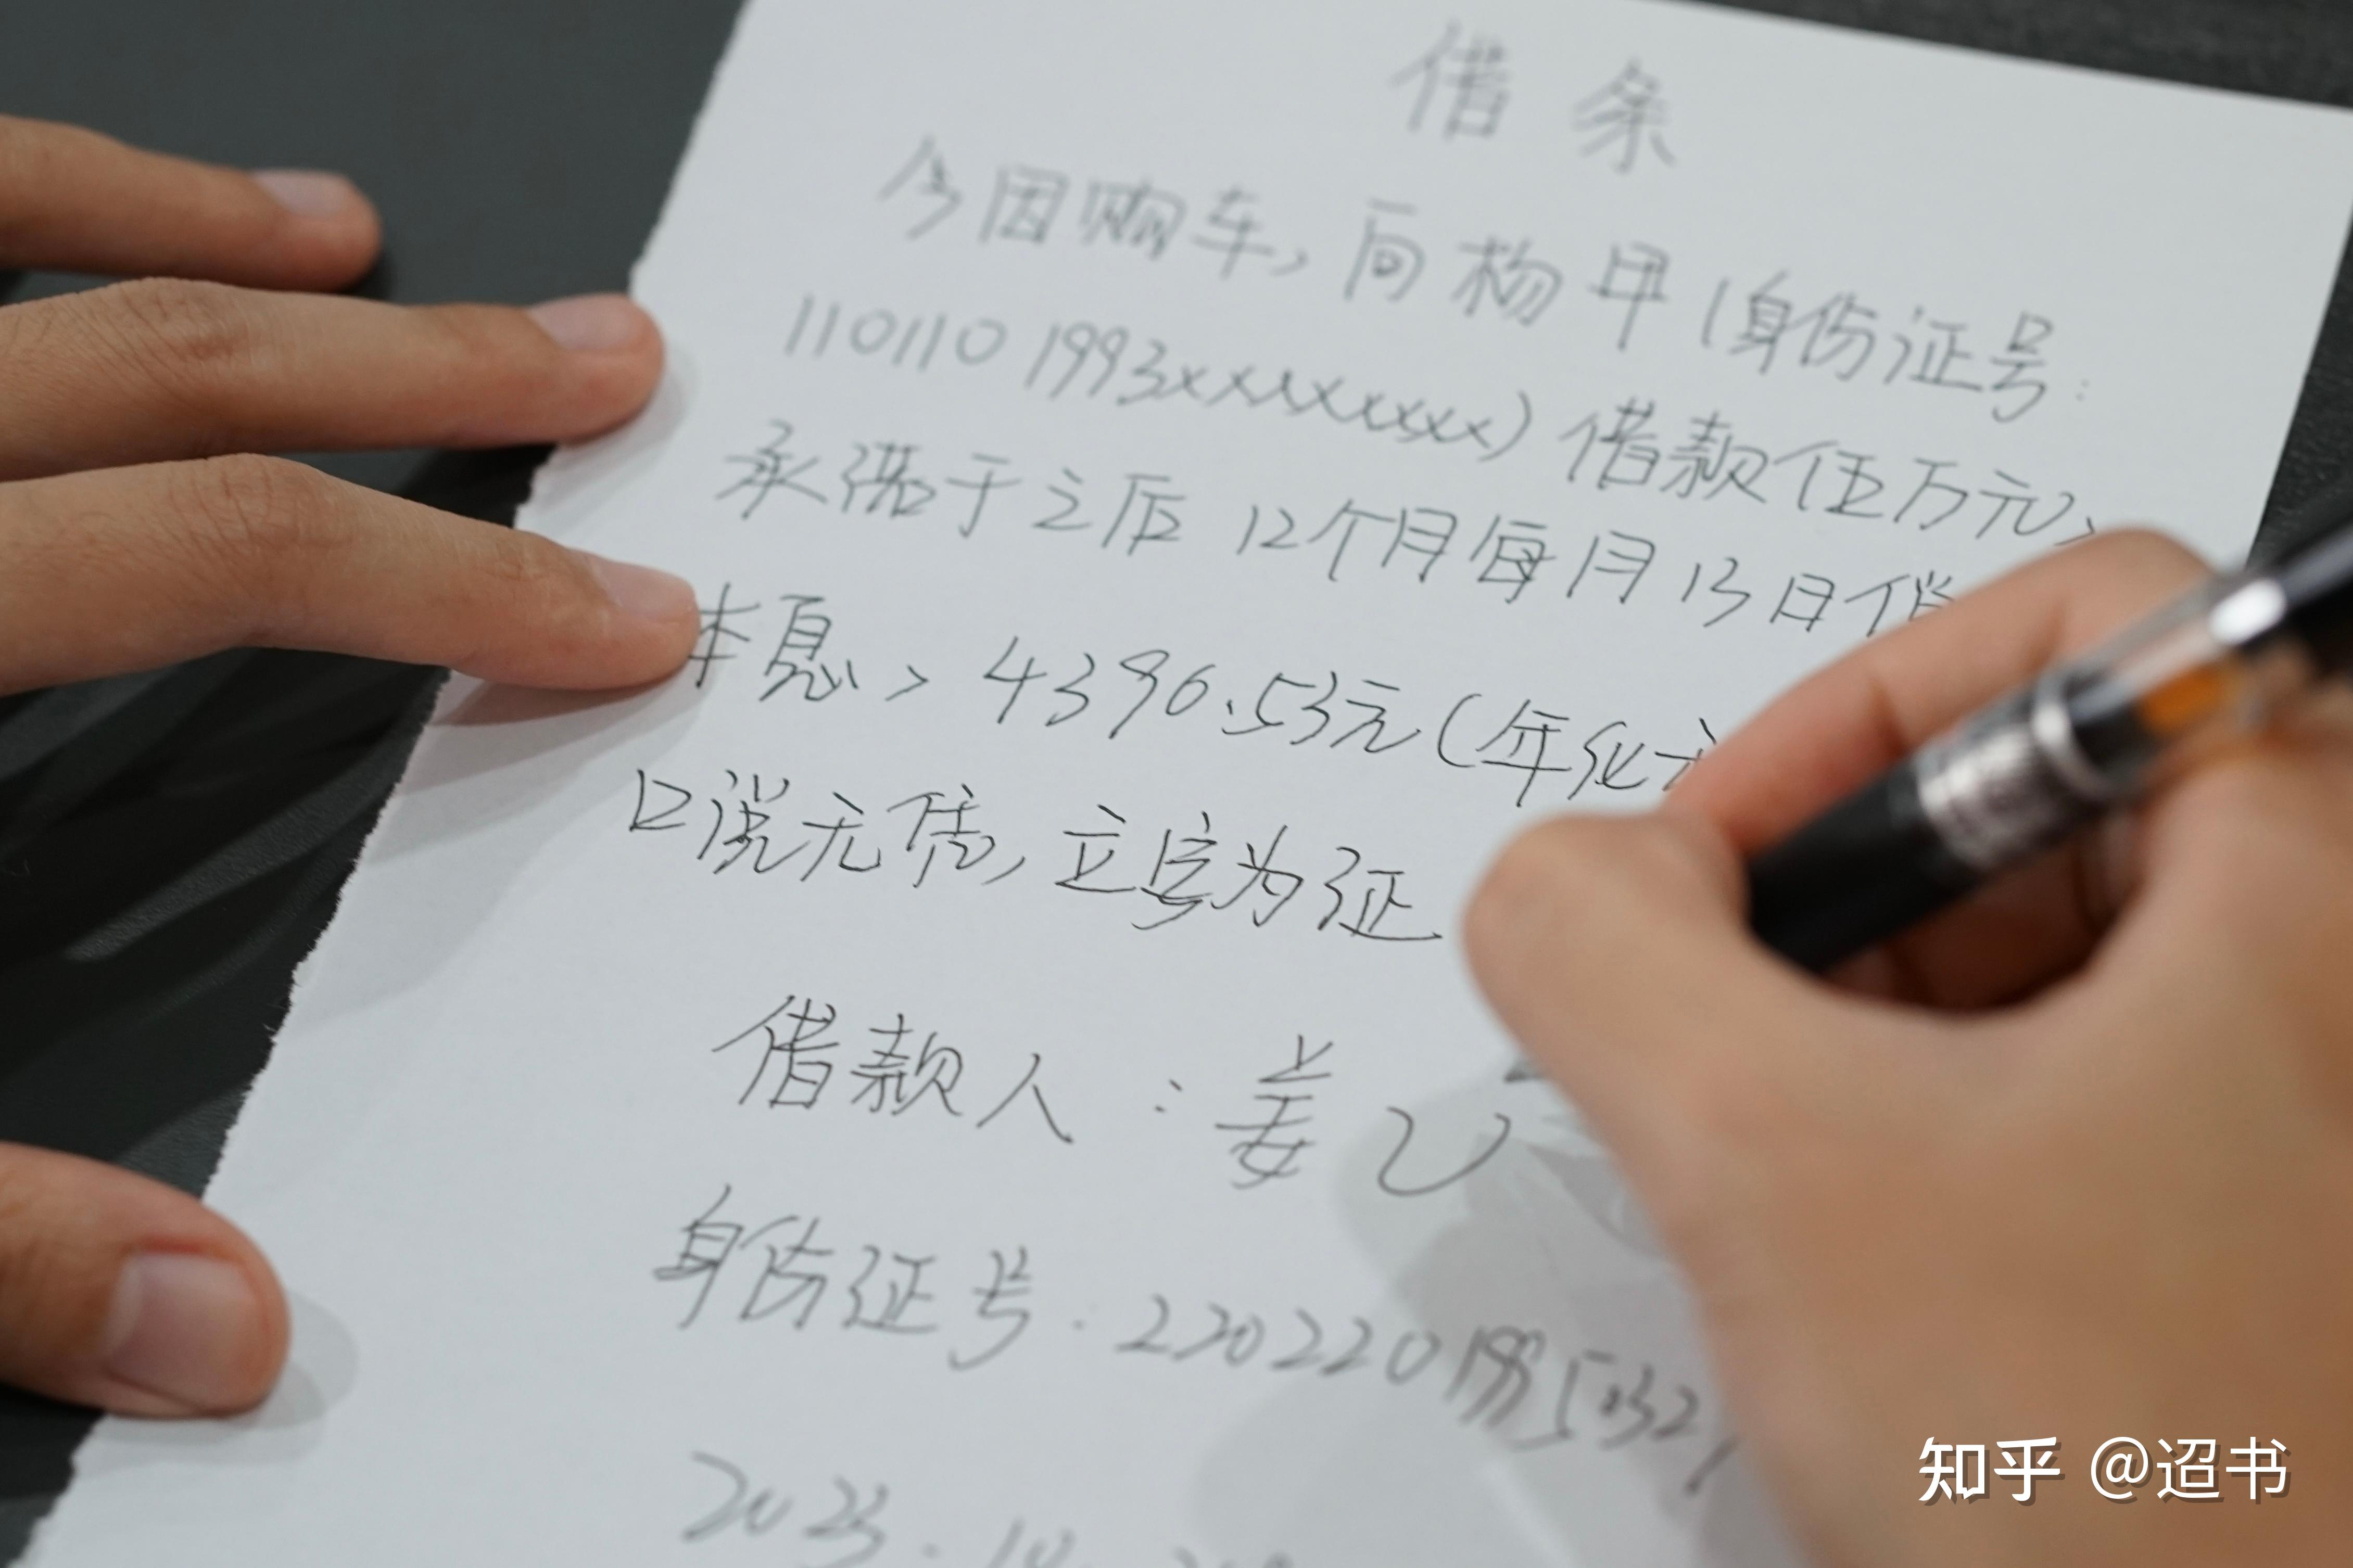 借条
今因购车，向杨甲（身份证号：
1101101993xxxxxxxx）借款伍万元，
承诺于之后12个月每月13日偿
本息，4396.53元（年化
口说无凭，立字为证
借款人：姜乙
身份证号：2202201995
2023.10.
知乎 @迢书